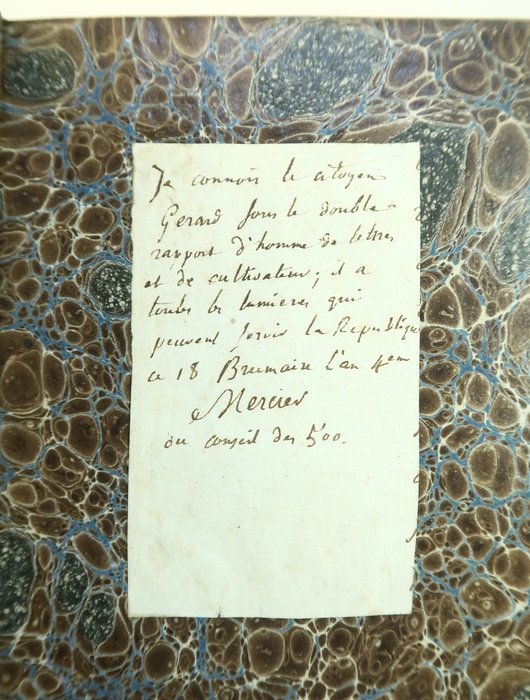 Je connois le citoyen
Gerard sous le double
raport d'homme de lettres
et de cultivateur; il a
toutes les lumieres qui
peuvent servir la Republique
ce 18 Brumaire l'an 4em
Mercier
au conseil des 500.